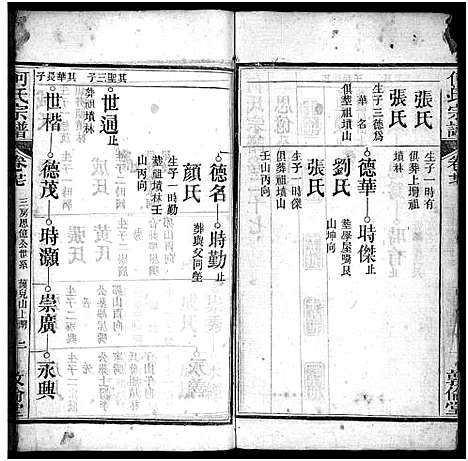 何氏宗譜
張氏
生子一時有
俱葬上壋祖
墳林
張氏
生子三德為
俱葬祖墳山
華名
德華
止
時傑
止
劉氏
葬學屋塆艮
山坤向
張氏
生子一時傑
俱葬祖墳山
壬山丙向
敦倫堂
其聖三子
世迵
止
葬斯墳林
德名
時勤
止
生子一時勤
葬祖墳林壬
山丙向
顔氏
葬與父同塋
其華長子
世楷
德茂
時灝
崇廣
永興
何氏宗譜
卷七
三房思億公世系
敦倫堂